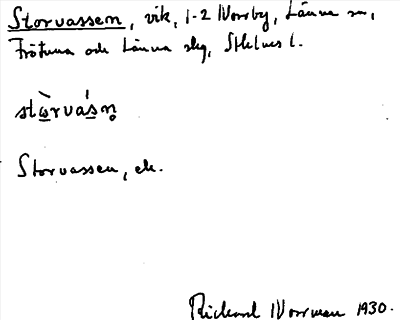 Storvassen, vik, 1-2 Norrby, Länna sn,
Frötuna och Länna skg, Sthlms l.
stòrvásn̥
Storvassen, ek.
Rickard Norrman 1930.